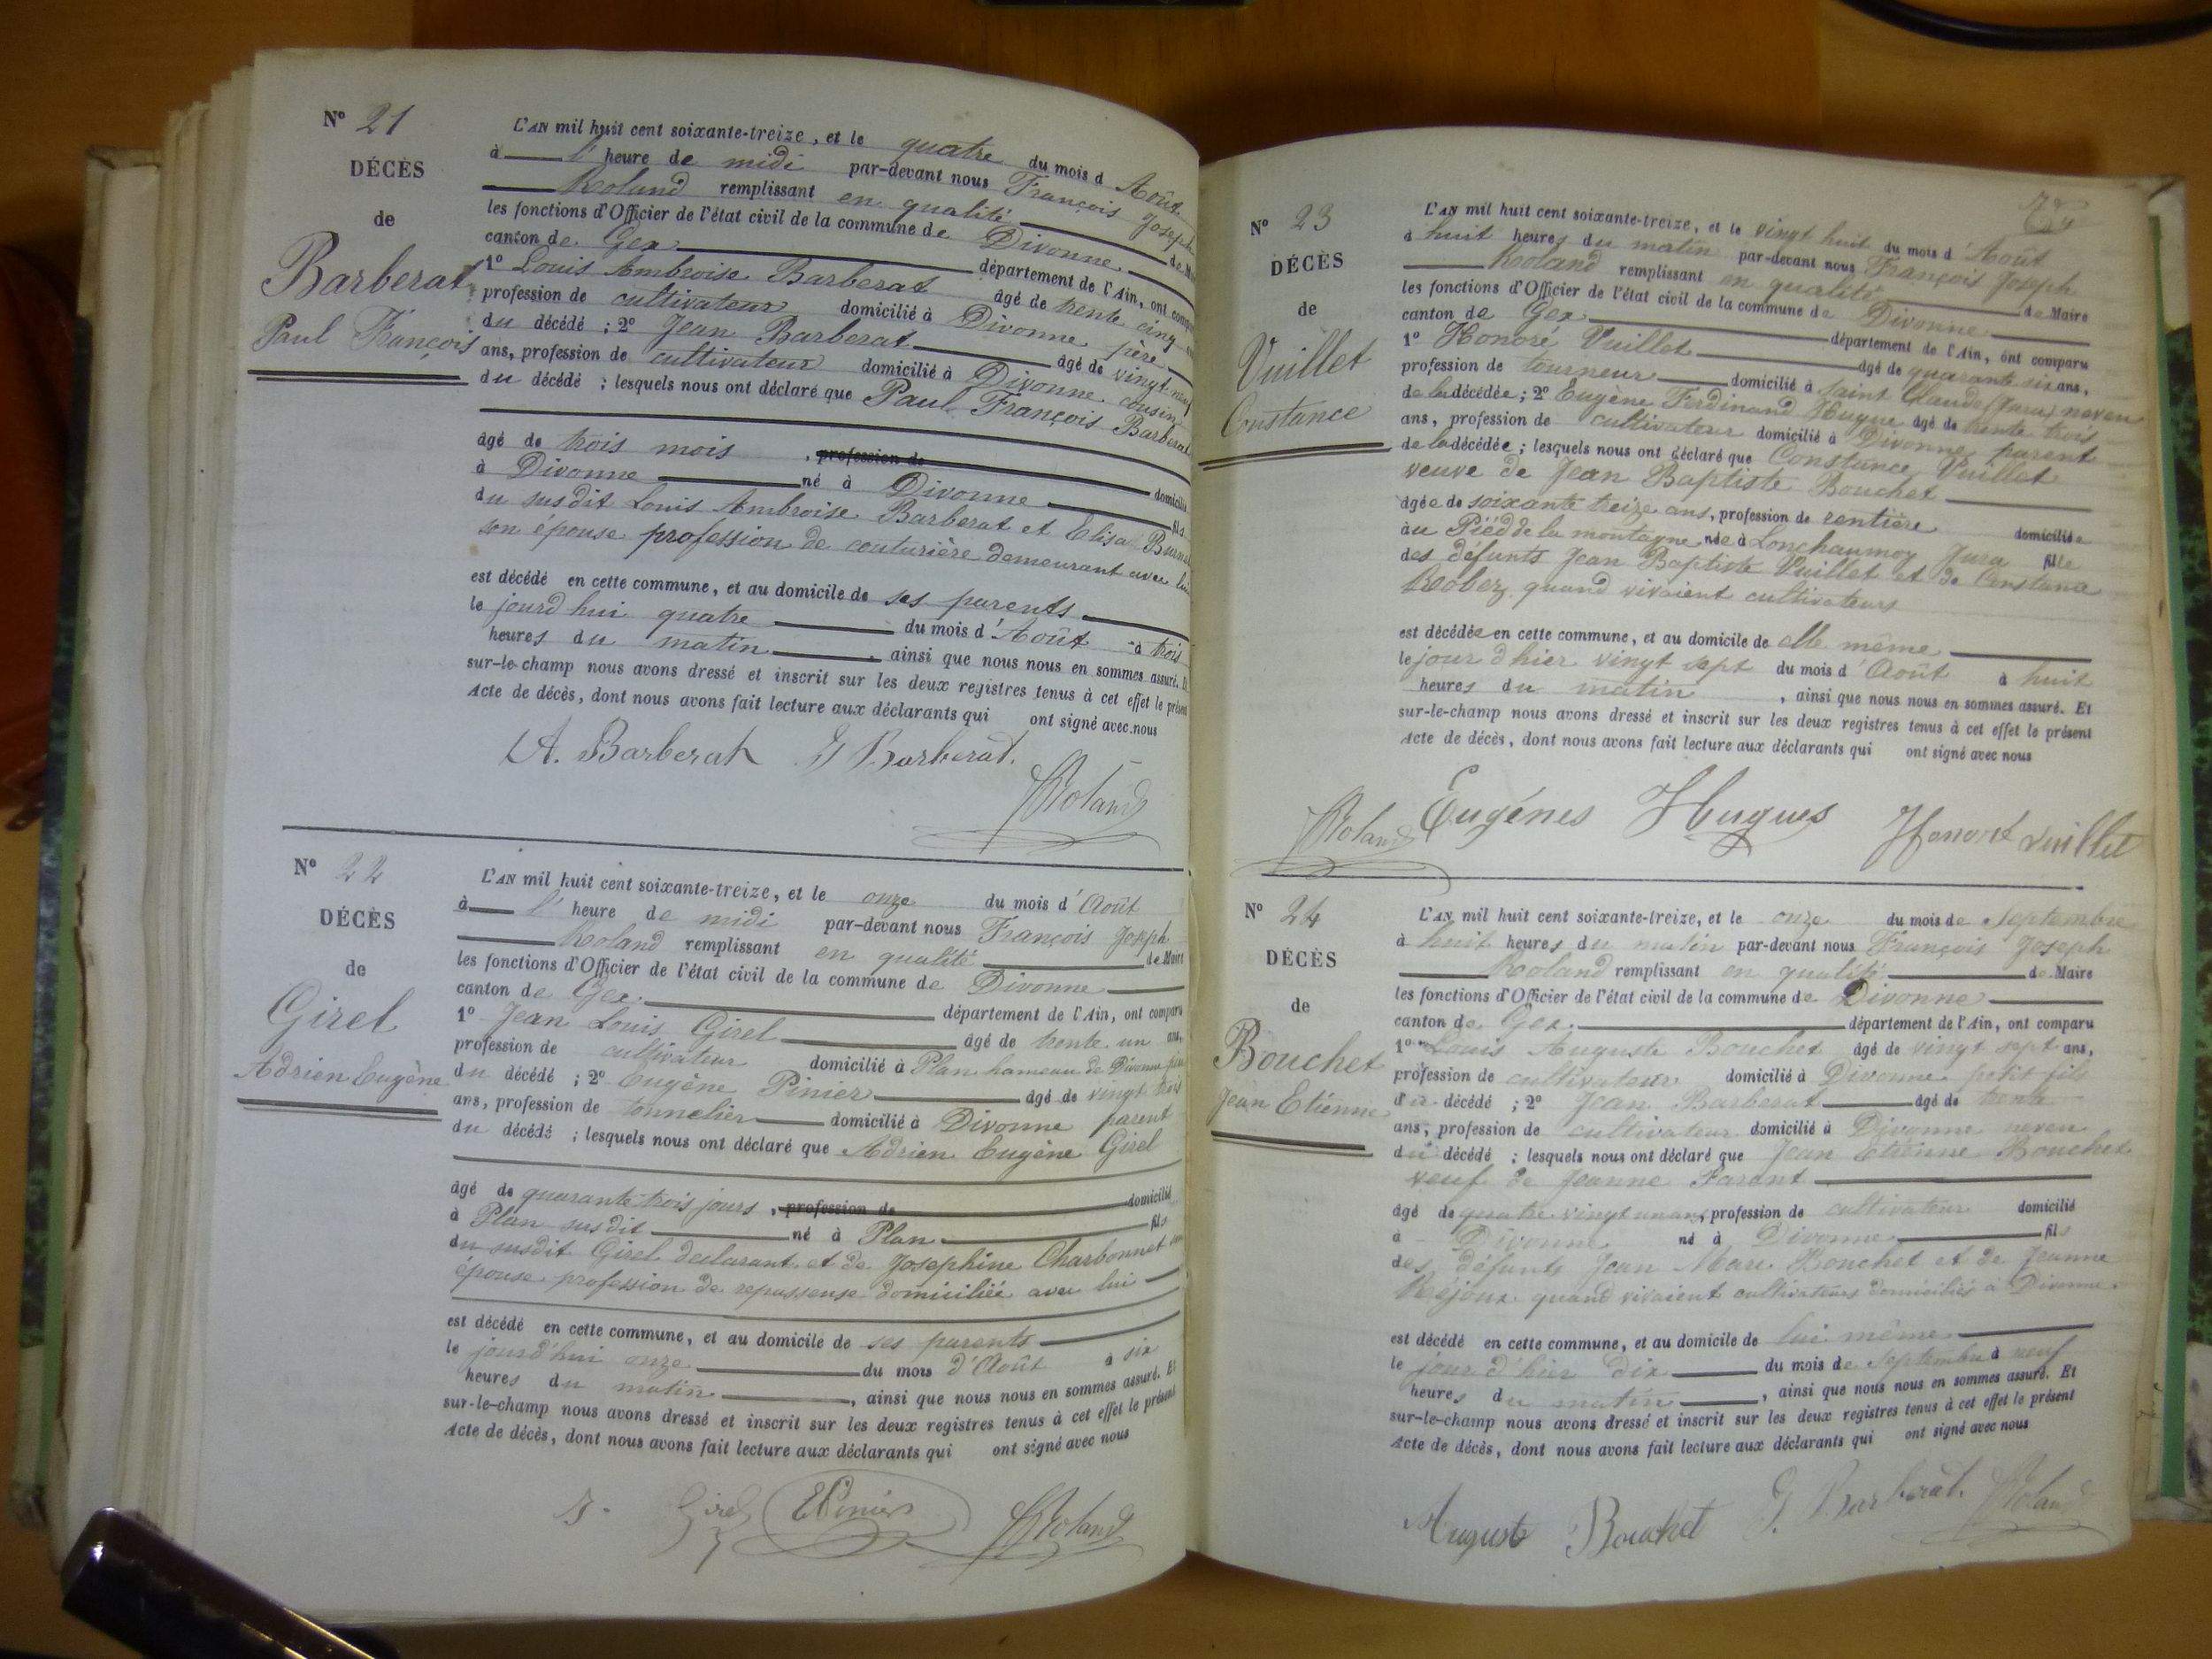 Nº 21
DÉCÈS
de
Barberat
Paul François
L'AN mil huit cent soixante-treize, et le quatre du mois d'Août
à l'heure de midi par-devant nous François Joseph
Roland remplissant en qualité de Maire
les fonctions d'Officier de l'état civil de la commune de Divonne
canton de Gex département de l'Ain, ont comparu
1º Louis Ambroise Barberat âgé de trente cinq
profession de cultivateur domicilié à Divonne père
du décédé ; 2º Jean Barberat âgé de vingt neuf
ans, profession de cultivateur domicilié à Divonne cousin
du décédé ; lesquels nous ont déclaré que Paul François Barberat
âgé de trois mois , profession de domicilié
à Divonne né à Divonne fils
du susdit Louis Ambroise Barberat et Elisa
son épouse profession de couturière demeurant avec lui
est décédé en cette commune, et au domicile de ses parents
le jourd'hui quatre du mois d'Août à trois
heures du matin , ainsi que nous nous en sommes assuré. Et
sur-le-champ nous avons dressé et inscrit sur les deux registres tenus à cet effet le présent
Acte de décès, dont nous avons fait lecture aux déclarants qui ont signé avec nous
A. Barberat J Barberat.
Roland
Nº 22
DÉCÈS
de
Girel
Adrien Eugène
L'AN mil huit cent soixante-treize, et le onze du mois d'Août
à l'heure de midi par-devant nous François Joseph
Roland remplissant en qualité de Maire
les fonctions d'Officier de l'état civil de la commune de Divonne
canton de Gex département de l'Ain, ont comparu
1º Jean Louis Girel âgé de trente un ans,
profession de cultivateur domicilié à Plan hameau de Divonne père
du décédé ; 2º Eugène Pinier âgé de vingt trois
ans, profession de tonnelier domicilié à Divonne parent
du décédé ; lesquels nous ont déclaré que Adrien Eugène Girel
âgé de quarante-trois jours , profession de domicilié
à Plan susdit né à Plan fils
du susdit Girel declarant et de Josephine Charbonnet son
épouse profession de repasseuse domiciliée avec lui
est décédé en cette commune, et au domicile de ses parents
le jourd'hui onze du mois d'Août à six
heures du matin , ainsi que nous nous en sommes assuré. Et
sur-le-champ nous avons dressé et inscrit sur les deux registres tenus à cet effet le présent
Acte de décès, dont nous avons fait lecture aux déclarants qui ont signé avec nous
J. Girel E Pinier Roland
Nº 23
DÉCÈS
de
Vuillet
Constance
L'AN mil huit cent soixante-treize, et le vingt huit du mois d'Août
à huit heures du matin par-devant nous François Joseph
Roland remplissant en qualité de Maire
les fonctions d'Officier de l'état civil de la commune de Divonne
canton de Gex département de l'Ain, ont comparu
1º Honoré Vuillet âgé de quarante six ans,
profession de tourneur domicilié à Saint Claude (Jura) neveu
de la décédée ; 2º Eugène Ferdinand Hugue âgé de trente trois
ans, profession de cultivateur domicilié à Divonne, parent
de la décédée ; lesquels nous ont déclaré que Constance Vuillet
veuve de Jean Baptiste Bouchet
âgée de soixante treize ans, profession de rentière domiciliée
au Pied de la montagne née à Lonchaumoy Jura fille
des défunts Jean Baptiste Vuillet et de Constance
Robez quand vivaient cultivateurs
est décédée en cette commune, et au domicile de elle même
le jour d'hier vingt sept du mois d'Août à huit
heures du matin , ainsi que nous nous en sommes assuré. Et
sur-le-champ nous avons dressé et inscrit sur les deux registres tenus à cet effet le présent
Acte de décès, dont nous avons fait lecture aux déclarants qui ont signé avec nous
Roland Eugénes Hugues Honoré Vuillet
Nº 24
DÉCÈS
de
Bouchet
Jean Etiénne
L'AN mil huit cent soixante-treize, et le onze du mois de Septembre
à huit heures du matin par-devant nous François Joseph
Roland remplissant en qualité de Maire
les fonctions d'Officier de l'état civil de la commune de Divonne
canton de Gex département de l'Ain, ont comparu
1º Louis Auguste Bouchet âgé de vingt sept ans,
profession de cultivateur domicilié à Divonne petit fils
du décédé ; 2º Jean Barberat âgé de trente
ans, profession de cultivateur domicilié à Divonne neveu
du décédé ; lesquels nous ont déclaré que Jean Etiénne Bouchet
veuf de Jeanne Farant
âgé de quatre vingt un ans, profession de cultivateur domicilié
à Divonne né à Divonne fils
des défunts Jean Marie Bouchet et de Jeanne
Réjoux quand vivaient cultivateurs domiciliés à Divonne.
est décédé en cette commune, et au domicile de lui même
le jour d'hier dix du mois de Septembre à neuf
heures du matin , ainsi que nous nous en sommes assuré. Et
sur-le-champ nous avons dressé et inscrit sur les deux registres tenus à cet effet le présent
Acte de décès, dont nous avons fait lecture aux déclarants qui ont signé avec nous
Auguste Bouchet J. Barberat. Roland